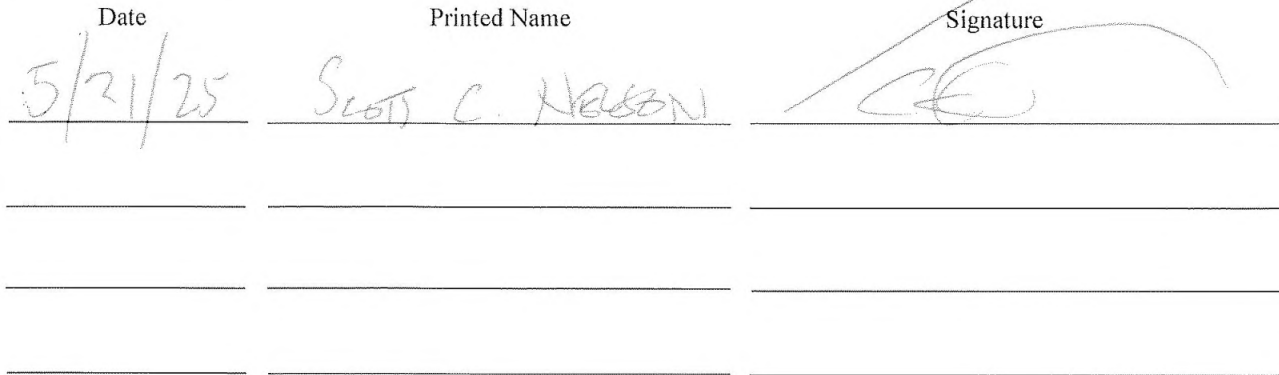 Date Printed Name Signature
5/21/25 Scott C. Nelson